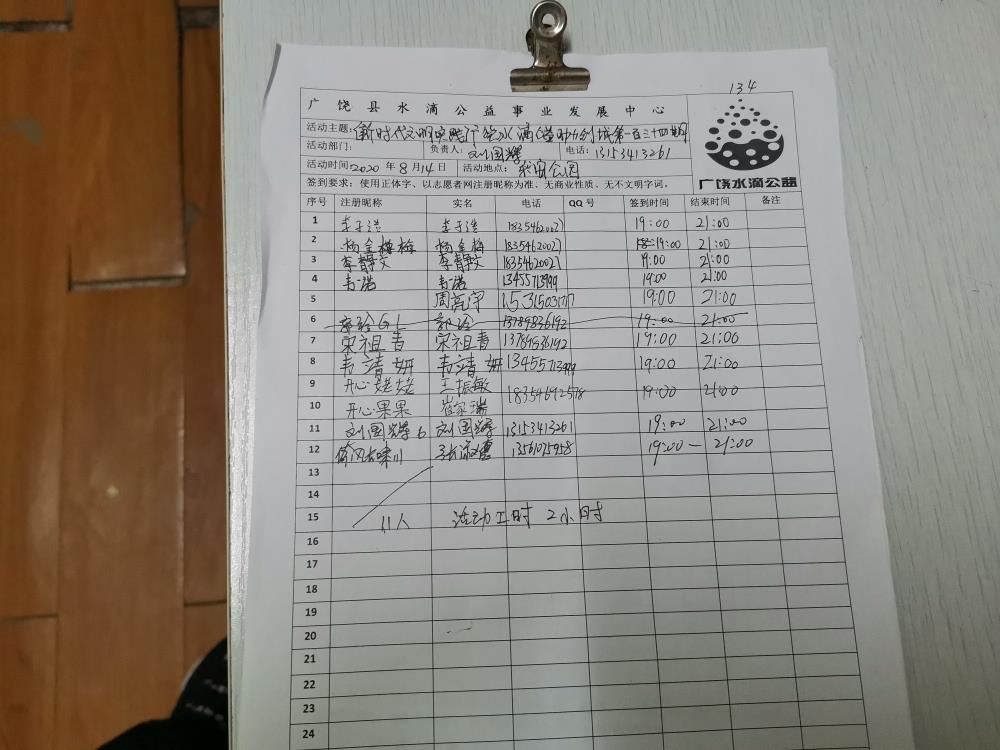 134
广 饶 县 水 滴 公 益 事 业 发 展 中 心
活动主题: 新时代文明实践广饶水滴公益助力创城第一百三十四期
活动部门: 负责人: 刘国辉 电话: 13153413261
活动时间 2020 年 8 月 14 日 活动地点:
签到要求: 使用正体字、以志愿者网注册昵称为准、无商业性质、无不文明字词。
广饶水滴公益
序号 注册昵称 实名 电话 QQ 号 签到时间 结束时间 备注
1 李子浩 李子浩 18354620027 19:00 21:00
2 杨金梅梅 杨金梅 18354620027 19:00 21:00
3 李静文 李静文 18354620027 19:00 21:00
4 韦诺 韦诺 13455713999 19:00 21:00
5 周亮宇 15315031717 19:00 21:00
6 GL 13789836192 19:00 21:00
7 宋祖青 宋祖青 13789836192 19:00 21:00
8 韦靖妍 韦靖妍 13455713999 19:00 21:00
9 开心姥姥 王振敏 18354692578 19:00 21:00
10 开心果果 崔家瑞
11 刘国辉6 刘国辉 13153413261 19:00 21:00
12 13561075958 19:00 — 21:00
13
14
15 11人 活动工时 2小时
16
17
18
19
20
21
22
23
24